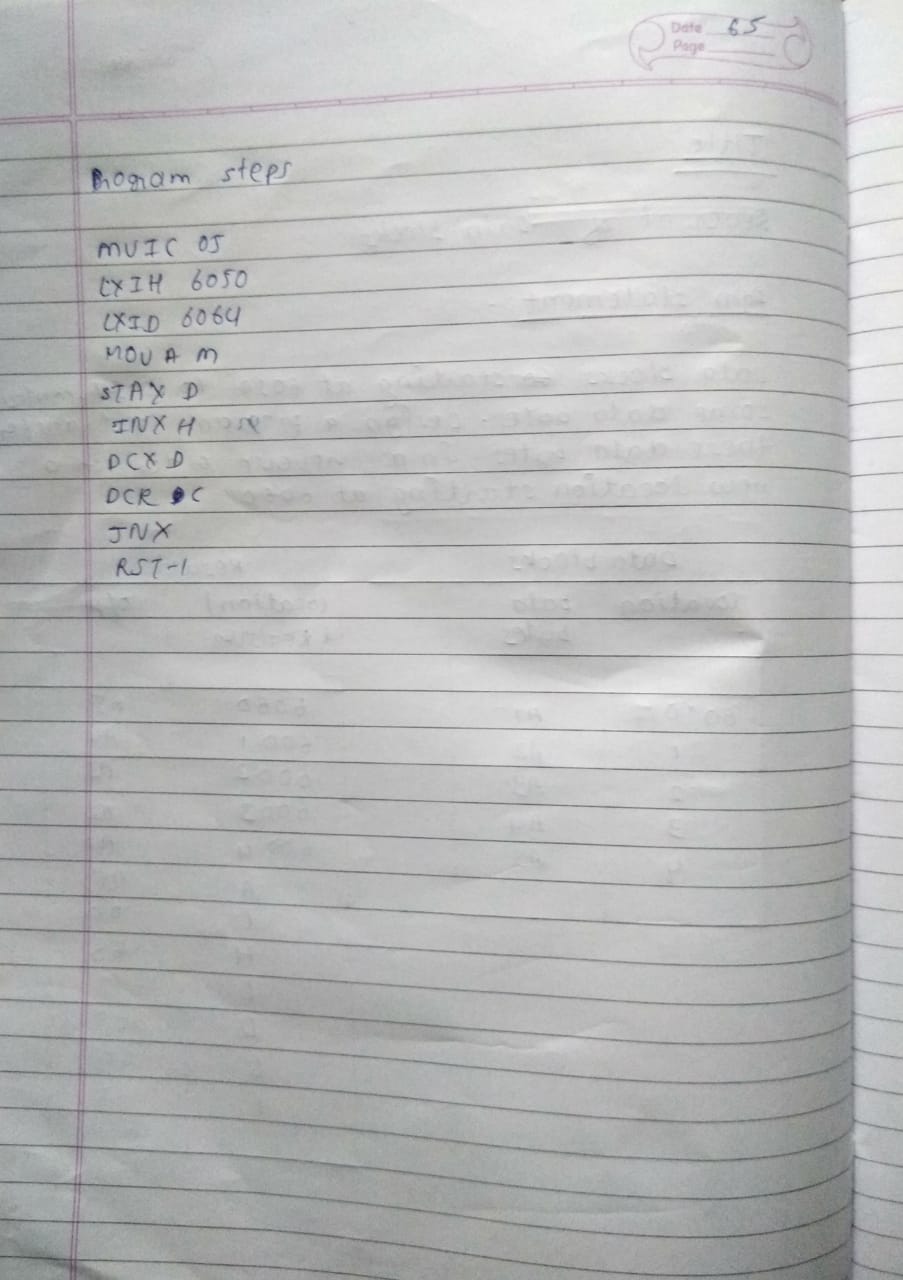 Date 65
Page
Program steps
MVI C 05
LXI H 6050
LXI D 6064
MOV A M
STAX D
INX H
DCX D
DCR C
JNX
RST-1